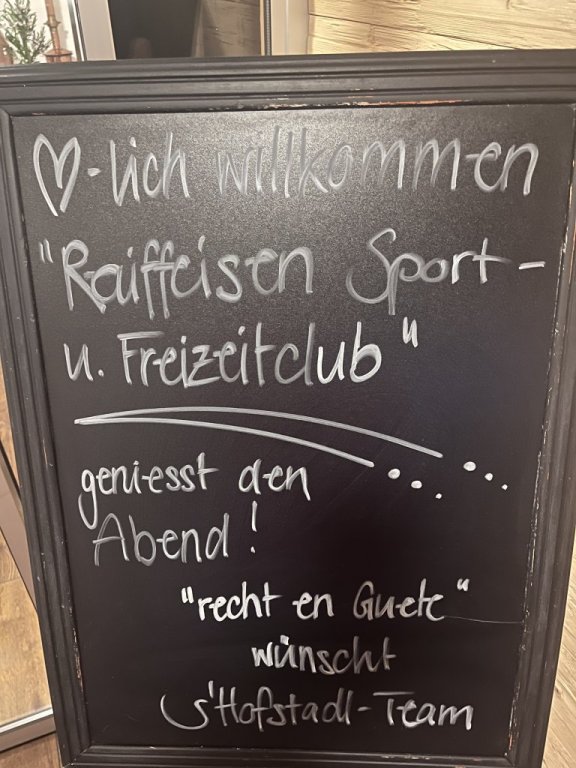 ♡-lich willkommen
"Raiffeisen Sport-
u. Freizeitclub"
geniesst den
Abend!
"recht en Guete"
wünscht
s'Hofstadl-Team